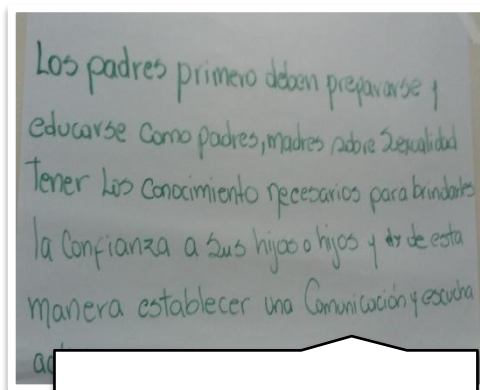 Los padres primero deben prepararse y
educarse como padres, madres sobre Sexualidad
Tener Los Conocimiento necesarios para brindarles
la Confianza a Sus hijos o hijos y de esta
manera establecer una Comunicación y escucha